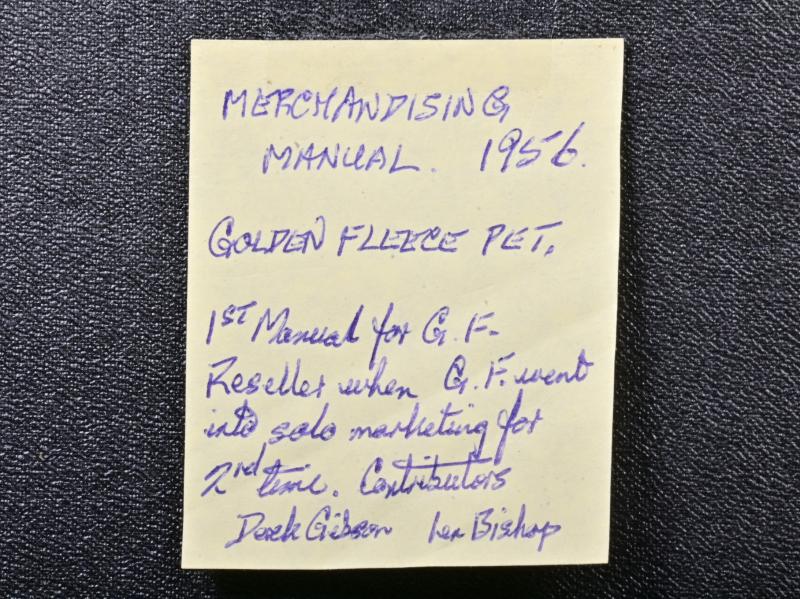 MERCHANDISING
MANUAL. 1956.
GOLDEN FLEECE PET.
1ST Manual for G.F.
Reseller when G.F. went
into solo marketing for
2nd time. Contributors
Derek Gibson Len Bishop